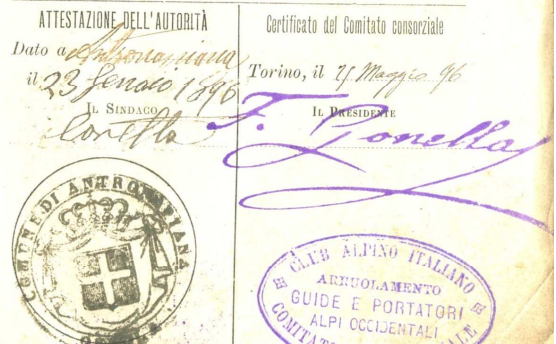 ATTESTAZIONE DELL'AUTORITÀ
Dato a Antronapiana
il 23 Gennaio 1896
IL SINDACO
COMUNE DI ANTRONAPIANA
Certificato del Comitato consorziale
Torino, il Maggio 96
IL PRESIDENTE
F. Gonella
CLUB ALPINO ITALIANO
ARRUOLAMENTO
GUIDE E PORTATORI
ALPI OCCIDENTALI